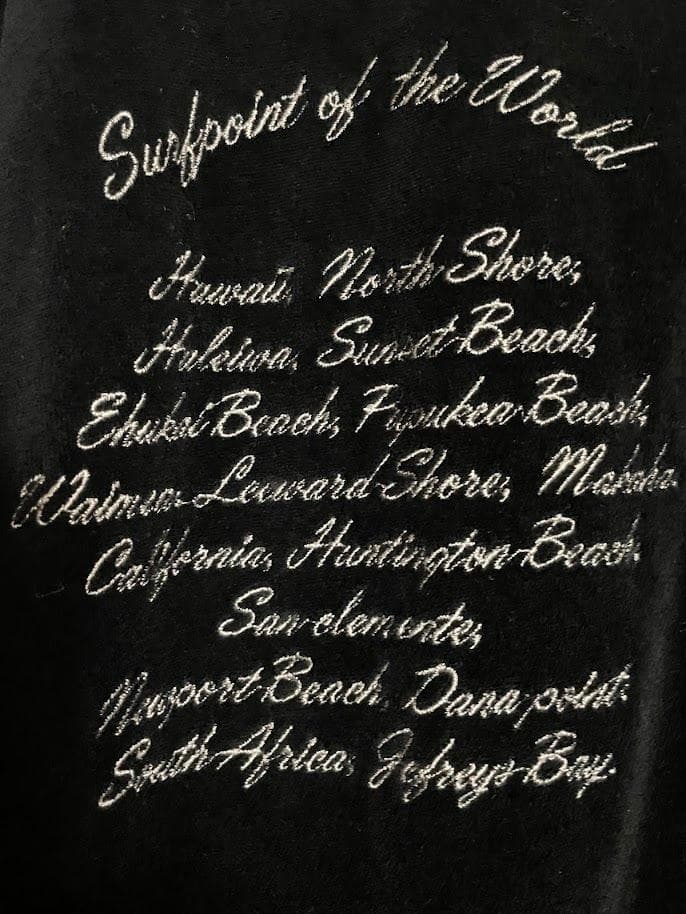 Surfpoint of the World
Hawaii, North Shore,
Haleiwa, Sunset Beach,
Ehukai Beach, Pupukea Beach,
Waimea. Leeward Shore, Makaha.
California, Huntington Beach.
San clemente,
Newport Beach, Dana point.
South Africa, Jefreys Bay.